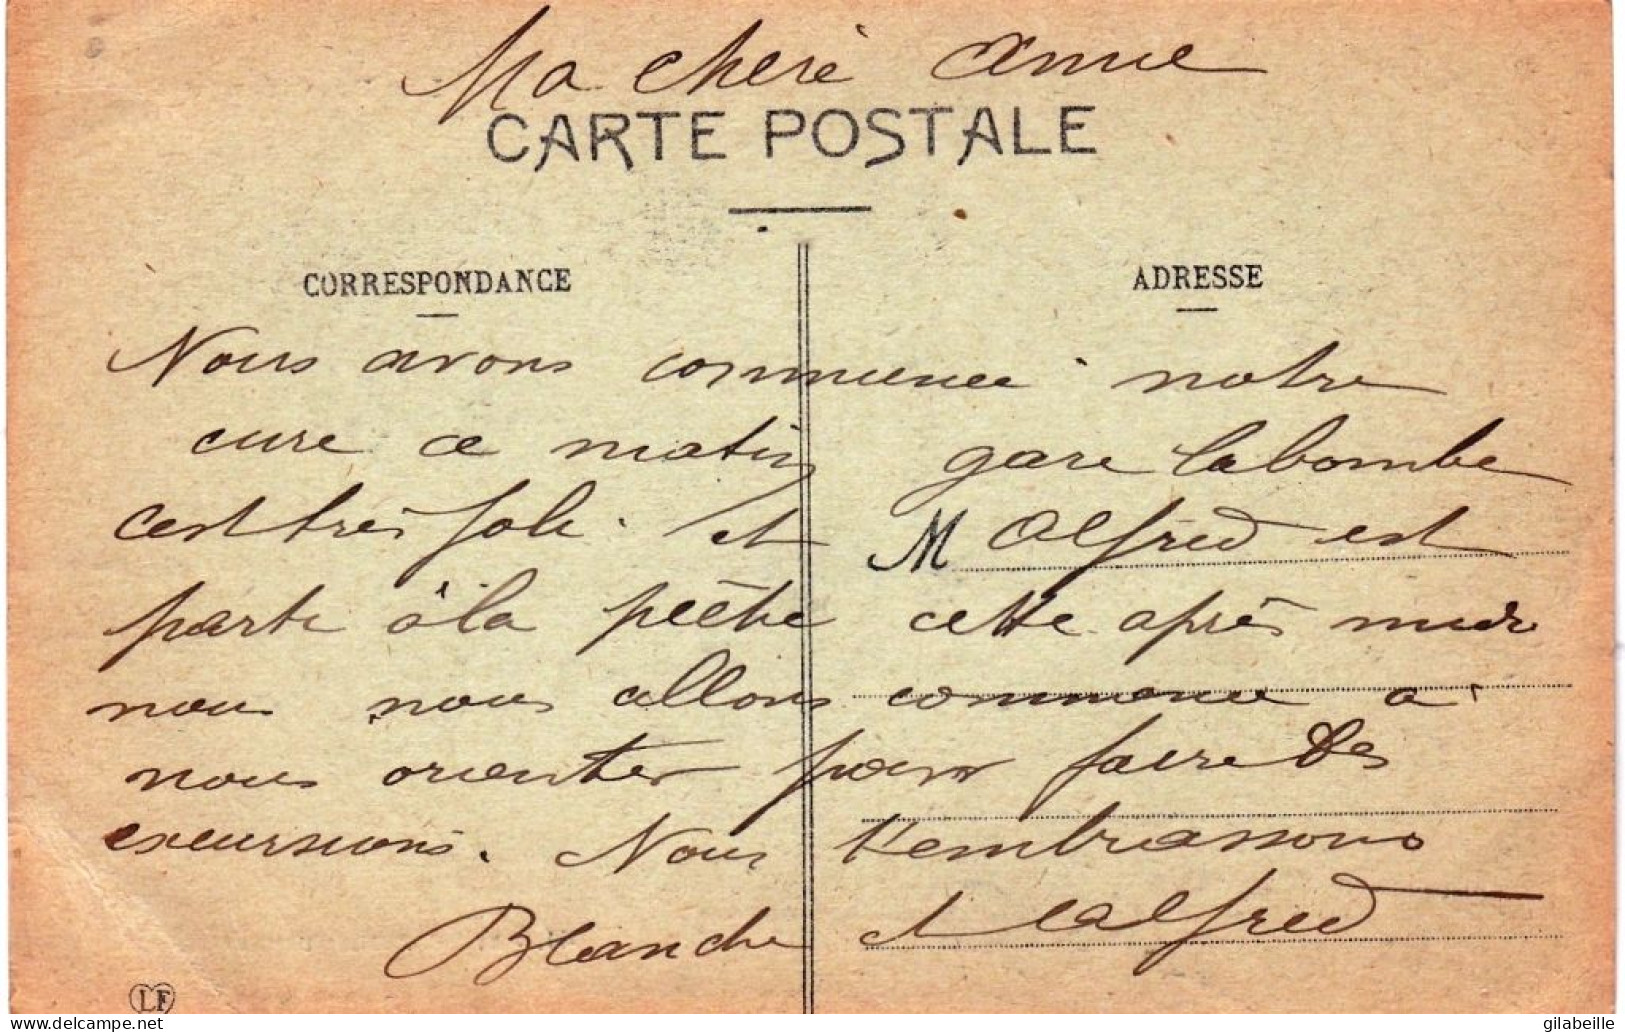 Ma cheré Anne
CARTE POSTALE
CORRESPONDANCE
ADRESSE
Nous avons commence notre
cure ce matin gare la bombe
c'est tres joli. et M Alfred est
parti à la pêche cette après midi
nous nous allons commence a
nous orienter pour faire des
excursions. Nous t'embrassons
Blanche et Alfred
LF
delcampe.net
gilabeille